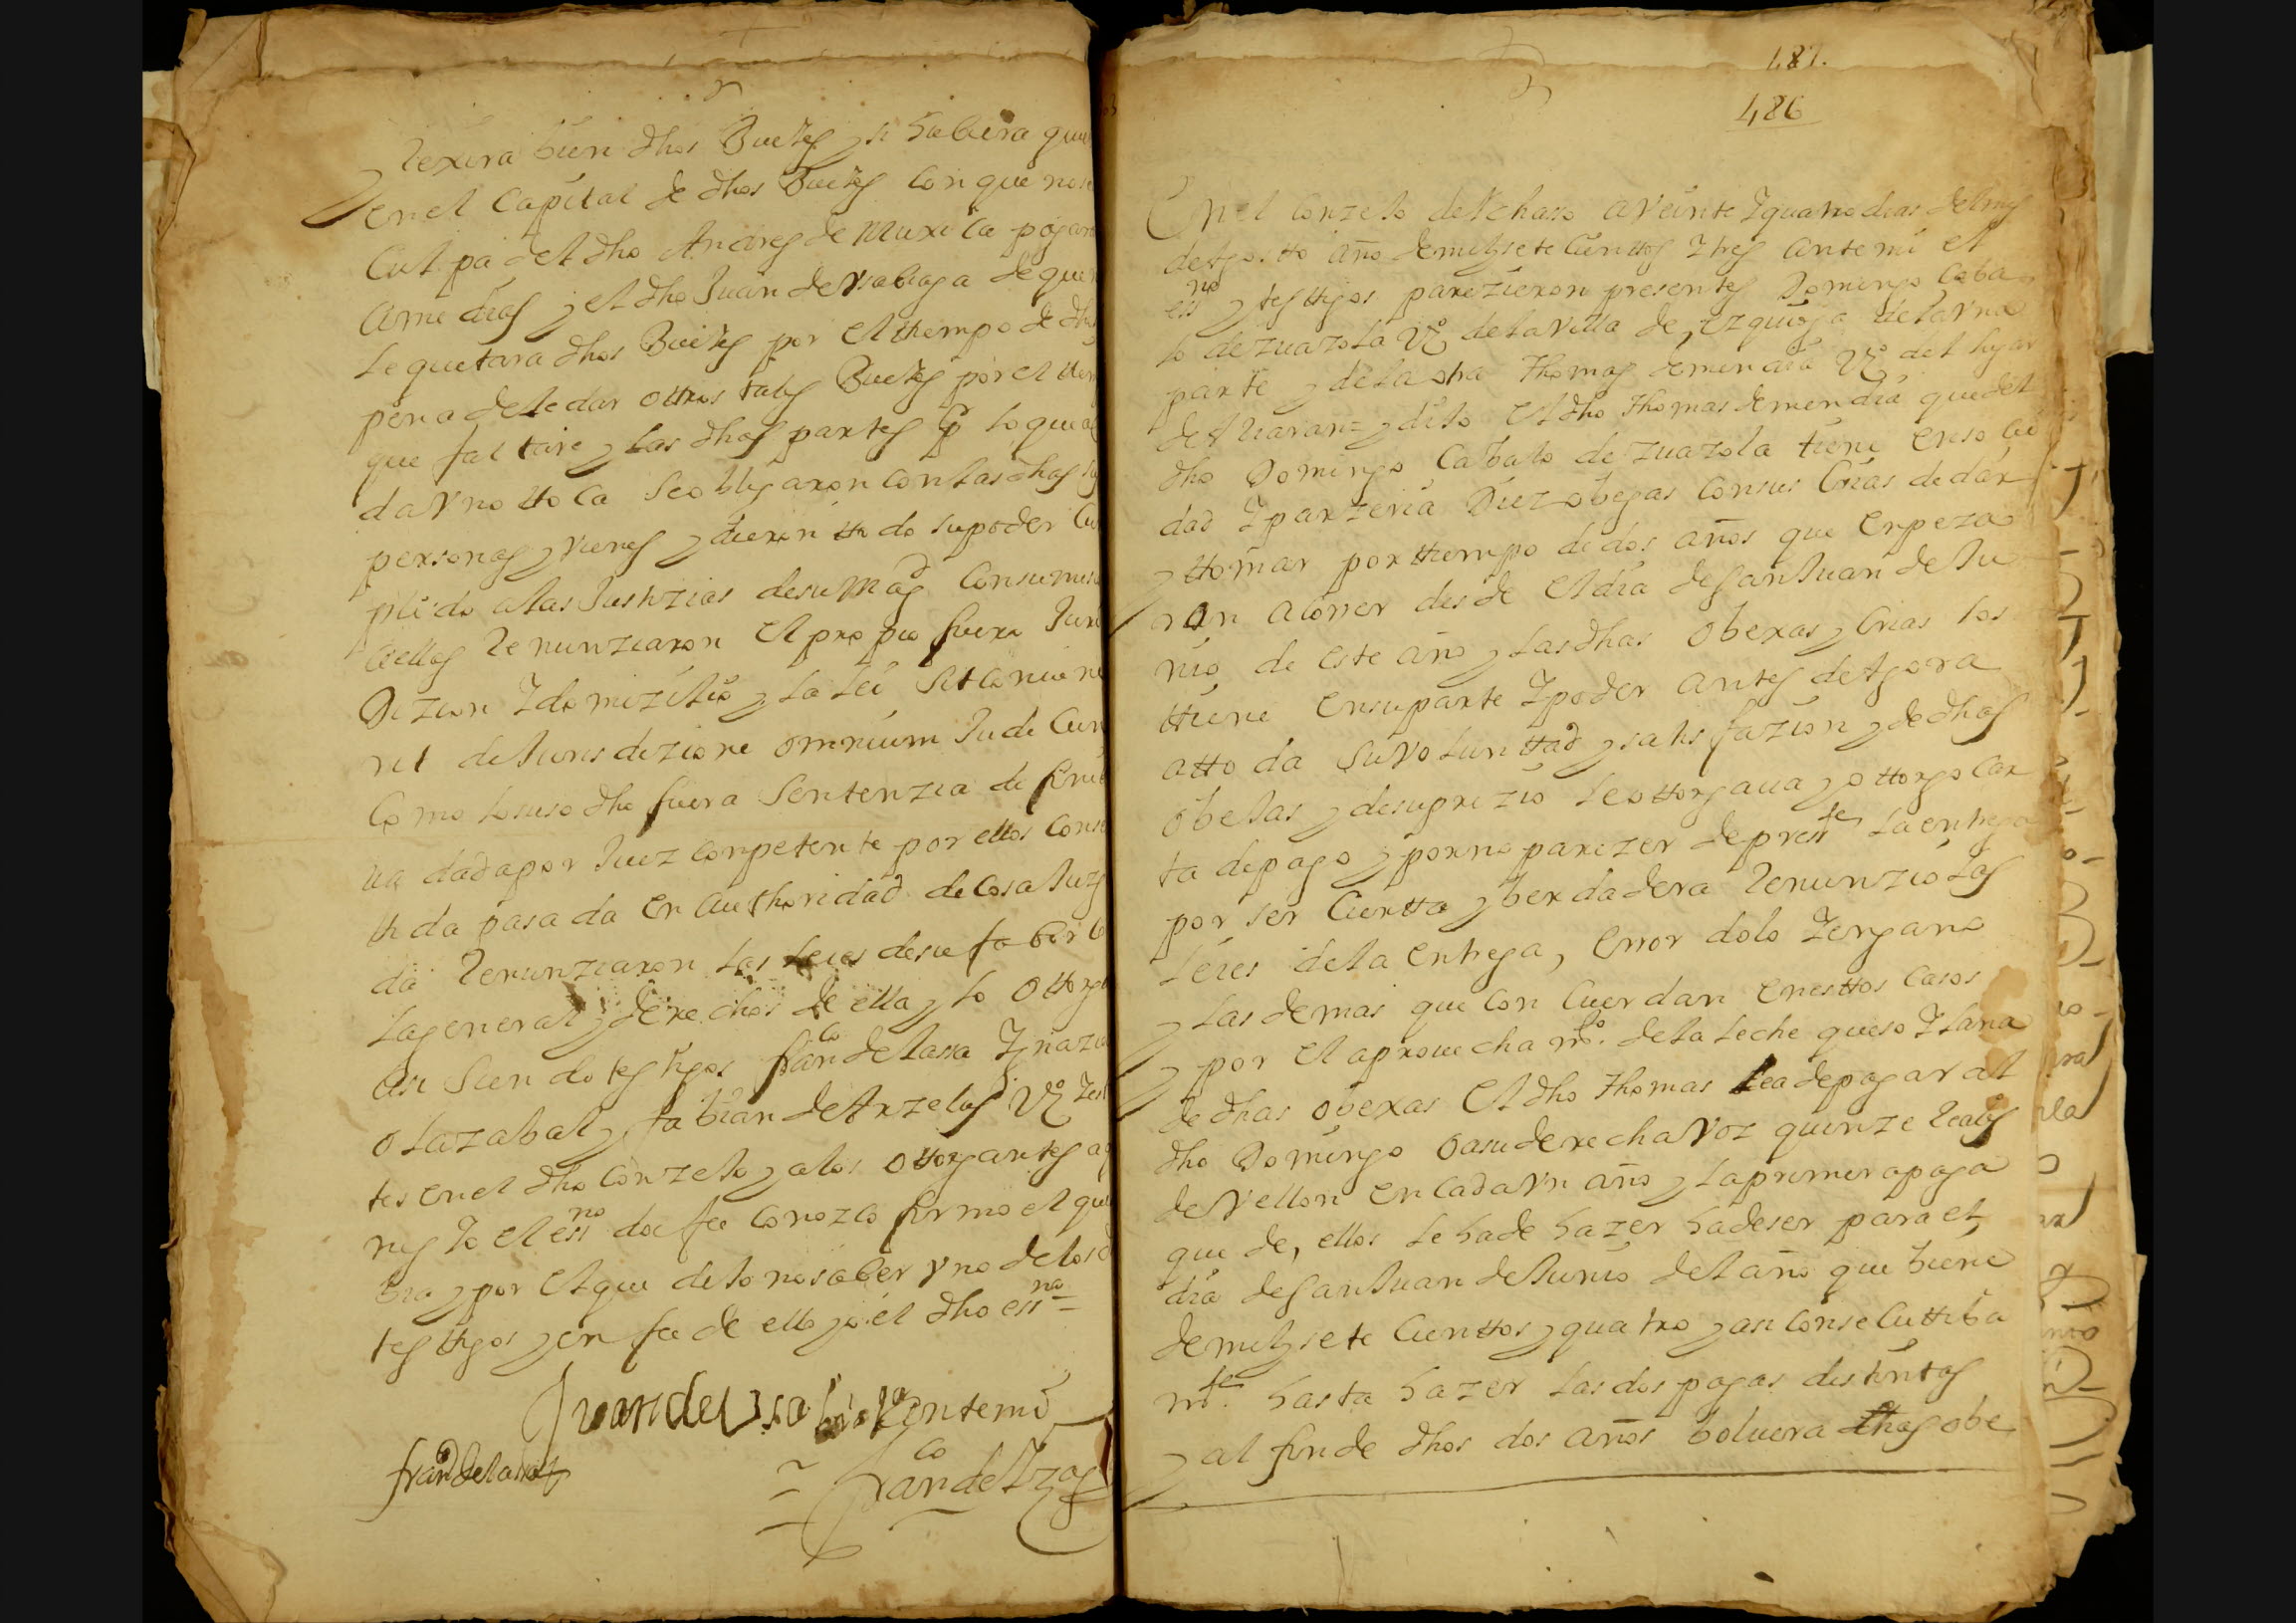 rexira bien dhos Bueyes y si hubiera que
en el Capital de dhos Bueyes con que no se
Culpa del dho Andres de Muxica pagar
a medias y el dho Juan de de quen
le quitara dhos Bueyes por el tiempo de dh
pena de le dar ottros tales Bueyes por el tiem
que faltare y las dhas partes p lo que a
da vno tto ca se obligaron con las dhas su
personas y vienes y dieron ttodo su poder Cu
plido a las Justizias de su Magd con sumis
a ellas renunziaron el propio fuero Juri
Dizion y domizilio y la lei sit conuene
rit de Jurisdizione omnium Judicum
Como lo suso dho fuera Sentenzia difinit
ua dada por Juez conpetente por ellos conse
tida pasada en authoridad de cosa Juzg
da renunziaron las leies de su fabor
la general y derechos de ella y lo ottorg
asi siendo testigos franco de lassa Ygnazio
olazabal y fabian de Arzelus Vos
tes en el dho Conzejo y a los ottorgantes a
nes yo el essno doi fee conozco firmo el que
bia y por el que dijo no saber vno de los d
testtigos y en fee de ello yo el dho essno =
Juan de Ante mi
franco de lassa
= franco de
487.
486
En el Conzejo de Ychasso a veinte y quatro dias del mes
de Agostto año de mil y sete cienttos y tres ante mi el
essno y testtigos parezieron presentes Domingo Caba
lo de zuazola Vo de la Villa de Ezquioga de la vna
parte y de la otra Thomas de mendia Vo del lugar
de y dijo el dho Thomas de mendia que del
dho Domingo Cabalo de zuazola tiene en so
dad y parzeria Diez obejas con sus Crias de dar
y ttomar por ttiempo de dos años que enpeza
ron a correr desde el dia de San Juan de Ju
nio de este año y las dhas obexas y Crias los
ttiene en su parte y poder antes de Agora
a ttoda su voluntad y satisfazion y de dhas
obejas y de su prezio le ottorgaua y ottorgo car
ta de pago y por no parezer de presste la entrega
por ser Ciertta y berdadera renunzio las
leies de la entrega, error dolo y engano
y las demas que con Cuerdan en esttos Casos
y por el aprouechamto. de la leche queso y lana
de dhas obexas el dho Thomas ha de pagar al
dho Domingo o a su derecha voz quinze reales
de vellon en cada vn año y la primera paga
que de, ellos le ha de hazer ha de ser para el
dia de San Juan de Junio del año que biene
de mil y sete Cienttos y quatro y asi conseCuttiba
mte. hasta hazer las dos pagas distintas
y al fin de dhos dos años boluera dhas obe